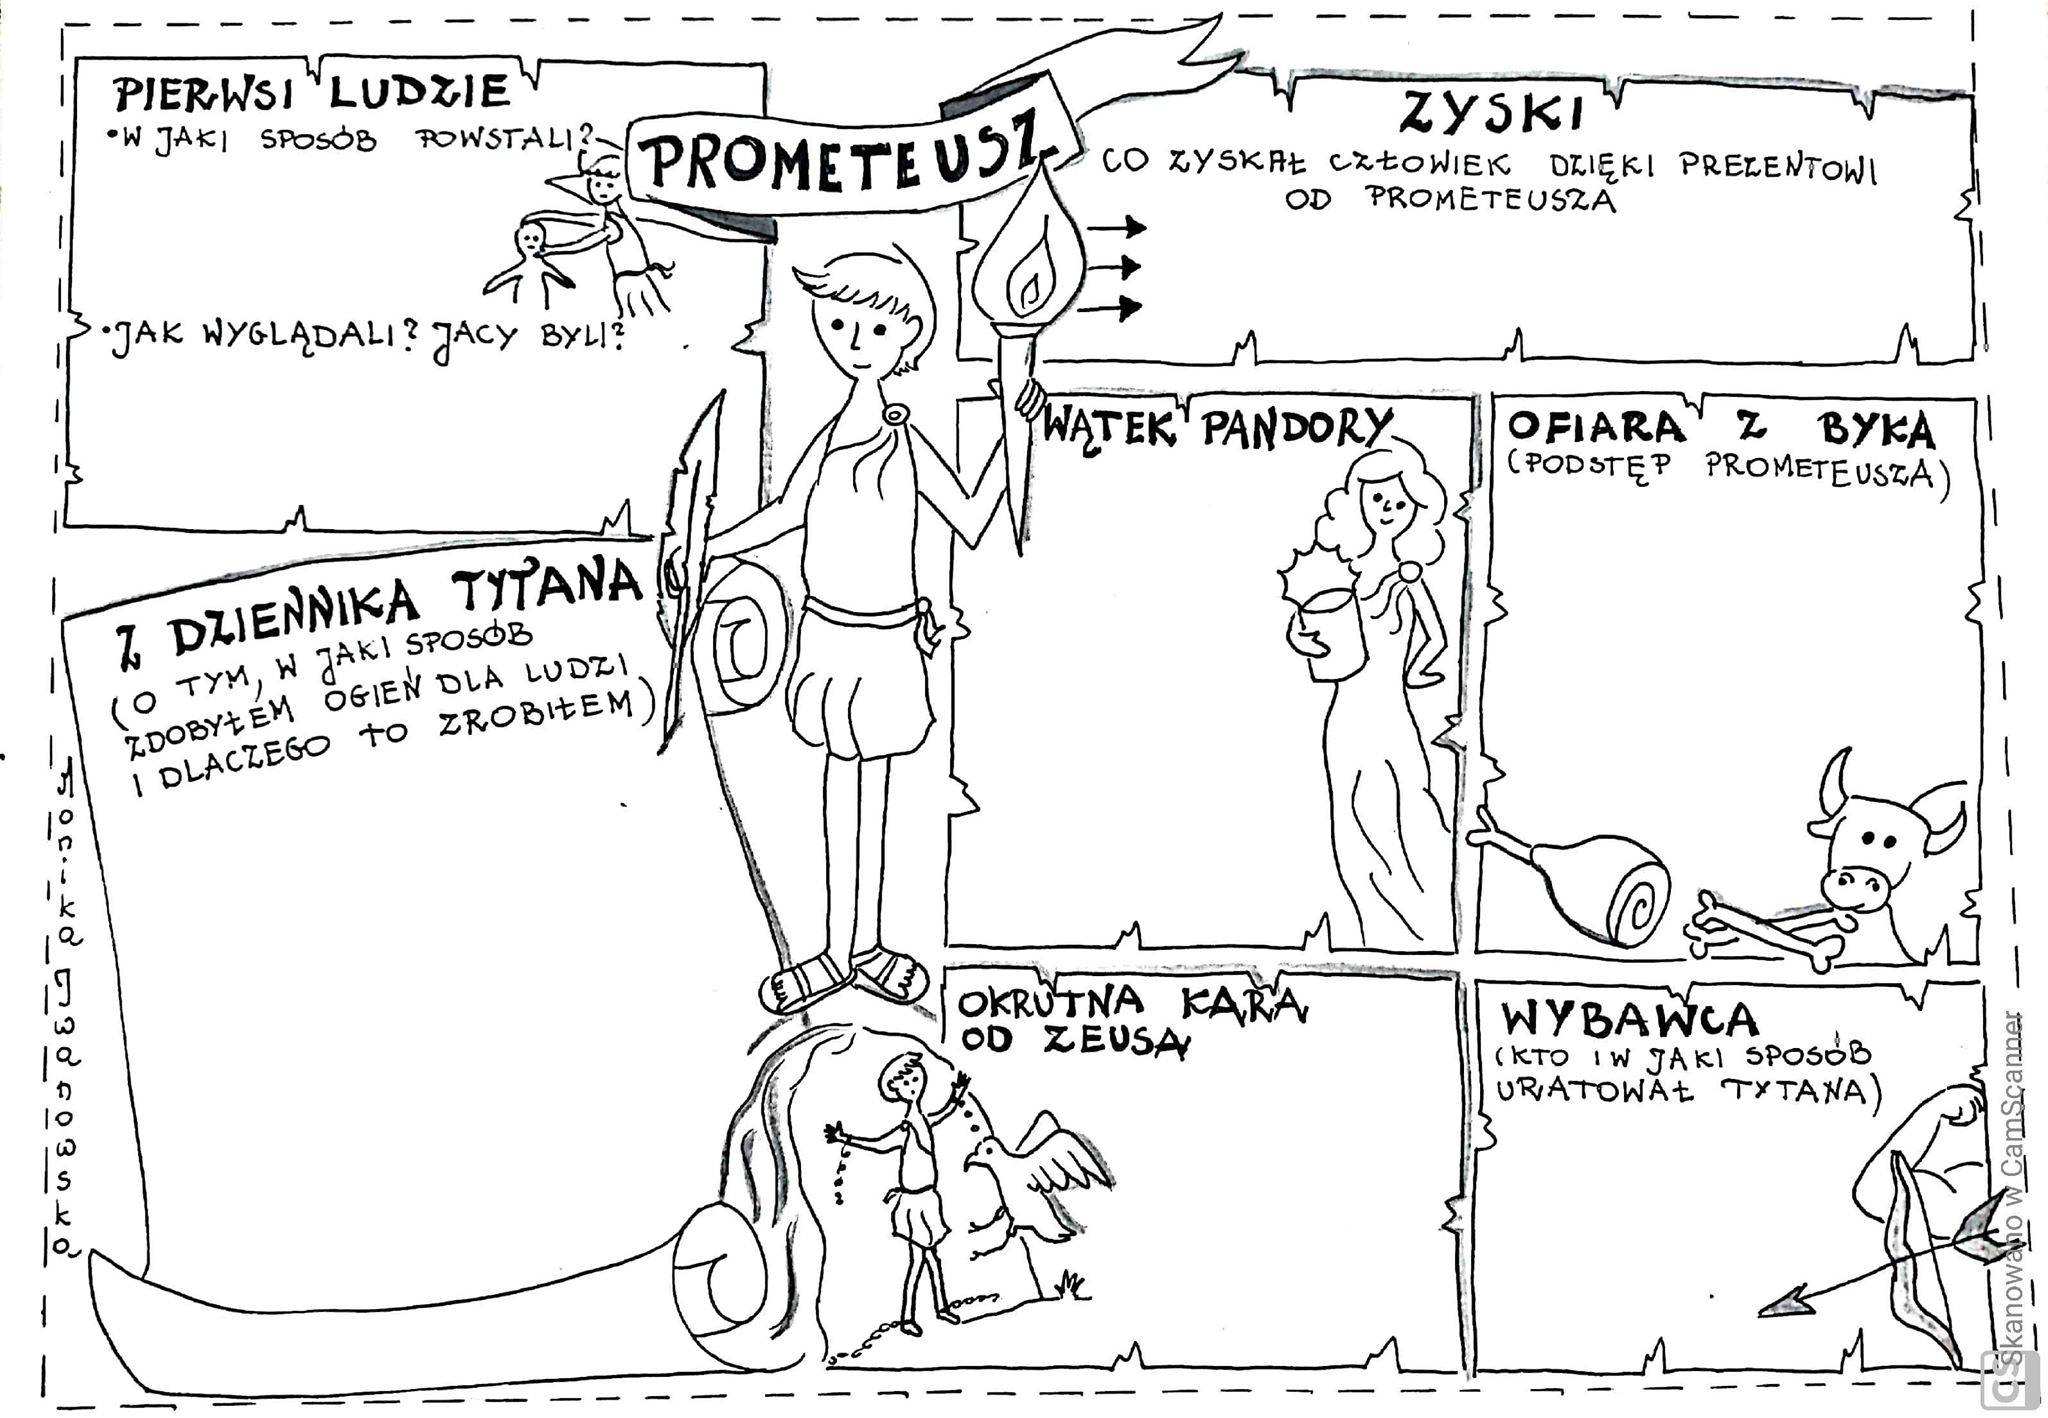 PROMETEUSZ
PIERWSI LUDZIE
•W JAKI SPOSÓB POWSTALI?
•JAK WYGLĄDALI? JACY BYLI?
ZYSKI
CO ZYSKAŁ CZŁOWIEK DZIĘKI PREZENTOWI
OD PROMETEUSZA
Z DZIENNIKA TYTANA
(O TYM, W JAKI SPOSÓB
ZDOBYŁEM OGIEŃ DLA LUDZI
I DLACZEGO TO ZROBIŁEM)
WĄTEK PANDORY
OFIARA Z BYKA
(PODSTĘP PROMETEUSZA)
OKRUTNA KARA
OD ZEUSA
WYBAWCA
(KTO I W JAKI SPOSÓB
URATOWAŁ TYTANA)
Monika Iwanowska
CS Skanowano w CamScanner